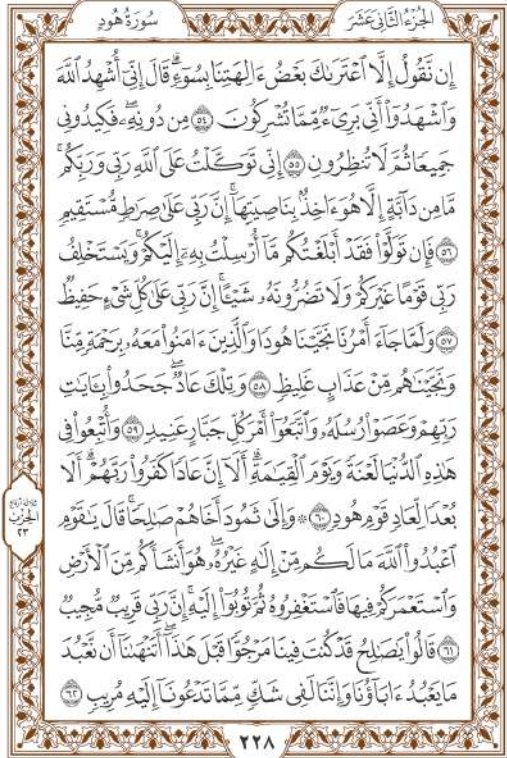 الجُزْءُ الثَّانِي عَشَرَ سُورَةُ هُودٍ
إِن نَّقُولُ إِلَّا ٱعْتَرَىٰكَ بَعْضُ ءَالِهَتِنَا بِسُوٓءٍۗ قَالَ إِنِّىٓ أُشْهِدُ ٱللَّهَ
وَٱشْهَدُوٓا۟ أَنِّى بَرِىٓءٌ مِّمَّا تُشْرِكُونَ ٥٤ مِن دُونِهِۦۖ فَكِيدُونِى
جَمِيعًا ثُمَّ لَا تُنظِرُونِ ٥٥ إِنِّى تَوَكَّلْتُ عَلَى ٱللَّهِ رَبِّى وَرَبِّكُمۚ
مَّا مِن دَآبَّةٍ إِلَّا هُوَ ءَاخِذٌۢ بِنَاصِيَتِهَآۚ إِنَّ رَبِّى عَلَىٰ صِرَٰطٍ مُّسْتَقِيمٍ
٥٦ فَإِن تَوَلَّوْا۟ فَقَدْ أَبْلَغْتُكُم مَّآ أُرْسِلْتُ بِهِۦٓ إِلَيْكُمْۚ وَيَسْتَخْلِفُ
رَبِّى قَوْمًا غَيْرَكُمْ وَلَا تَضُرُّونَهُۥ شَيْـًٔاۚ إِنَّ رَبِّى عَلَىٰ كُلِّ شَىْءٍ حَفِيظٌ
٥٧ وَلَمَّا جَآءَ أَمْرُنَا نَجَّيْنَا هُودًا وَٱلَّذِينَ ءَامَنُوا۟ مَعَهُۥ بِرَحْمَةٍ مِّنَّا
وَنَجَّيْنَٰهُم مِّنْ عَذَابٍ غَلِيظٍ ٥٨ وَتِلْكَ عَادٌۖ جَحَدُوا۟ بِـَٔايَٰتِ
رَبِّهِمْ وَعَصَوْا۟ رُسُلَهُۥ وَٱتَّبَعُوٓا۟ أَمْرَ كُلِّ جَبَّارٍ عَنِيدٍ ٥٩ وَأُتْبِعُوا۟ فِى
هَٰذِهِ ٱلدُّنْيَا لَعْنَةً وَيَوْمَ ٱلْقِيَٰمَةِۗ أَلَآ إِنَّ عَادًا كَفَرُوا۟ رَبَّهُمْۗ أَلَا
بُعْدًا لِّعَادٍ قَوْمِ هُودٍ ٦٠ ۞ وَإِلَىٰ ثَمُودَ أَخَاهُمْ صَٰلِحًاۚ قَالَ يَٰقَوْمِ
ٱعْبُدُوا۟ ٱللَّهَ مَا لَكُم مِّنْ إِلَٰهٍ غَيْرُهُۥۖ هُوَ أَنشَأَكُم مِّنَ ٱلْأَرْضِ
وَٱسْتَعْمَرَكُمْ فِيهَا فَٱسْتَغْفِرُوهُ ثُمَّ تُوبُوٓا۟ إِلَيْهِۚ إِنَّ رَبِّى قَرِيبٌ مُّجِيبٌ
٦١ قَالُوا۟ يَٰصَٰلِحُ قَدْ كُنتَ فِينَا مَرْجُوًّا قَبْلَ هَٰذَآۖ أَتَنْهَىٰنَآ أَن نَّعْبُدَ
مَا يَعْبُدُ ءَابَآؤُنَا وَإِنَّنَا لَفِى شَكٍّ مِّمَّا تَدْعُونَآ إِلَيْهِ مُرِيبٍ ٦٢
ثلاثة أرباع
الحِزْبُ
٢٣
٢٢٨